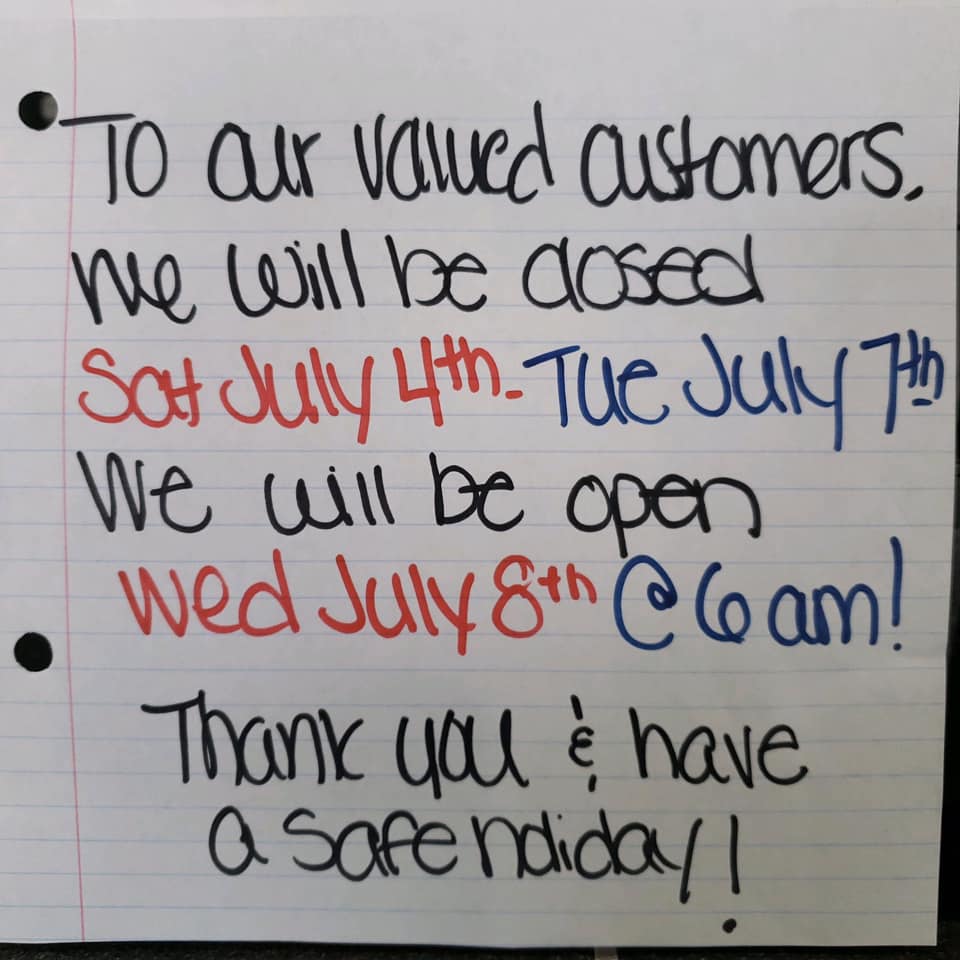 To our valued customers.
We will be closed
Sat July 4th - Tue July 7th
We will be open
Wed July 8th @ 6am!
Thank you & have
a safe holiday!